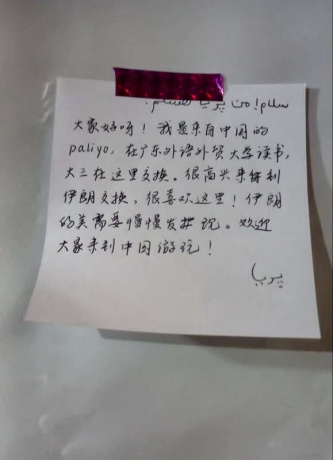 سلام! من پریا هستم.
大家好呀！我是来自中国的
paliyo，在广东外语外贸大学读书，
大三在这里交换。很高兴来
伊朗交换，很喜欢这里！伊朗
的美需要慢慢发现。欢迎
大家来到中国游玩！
پریا